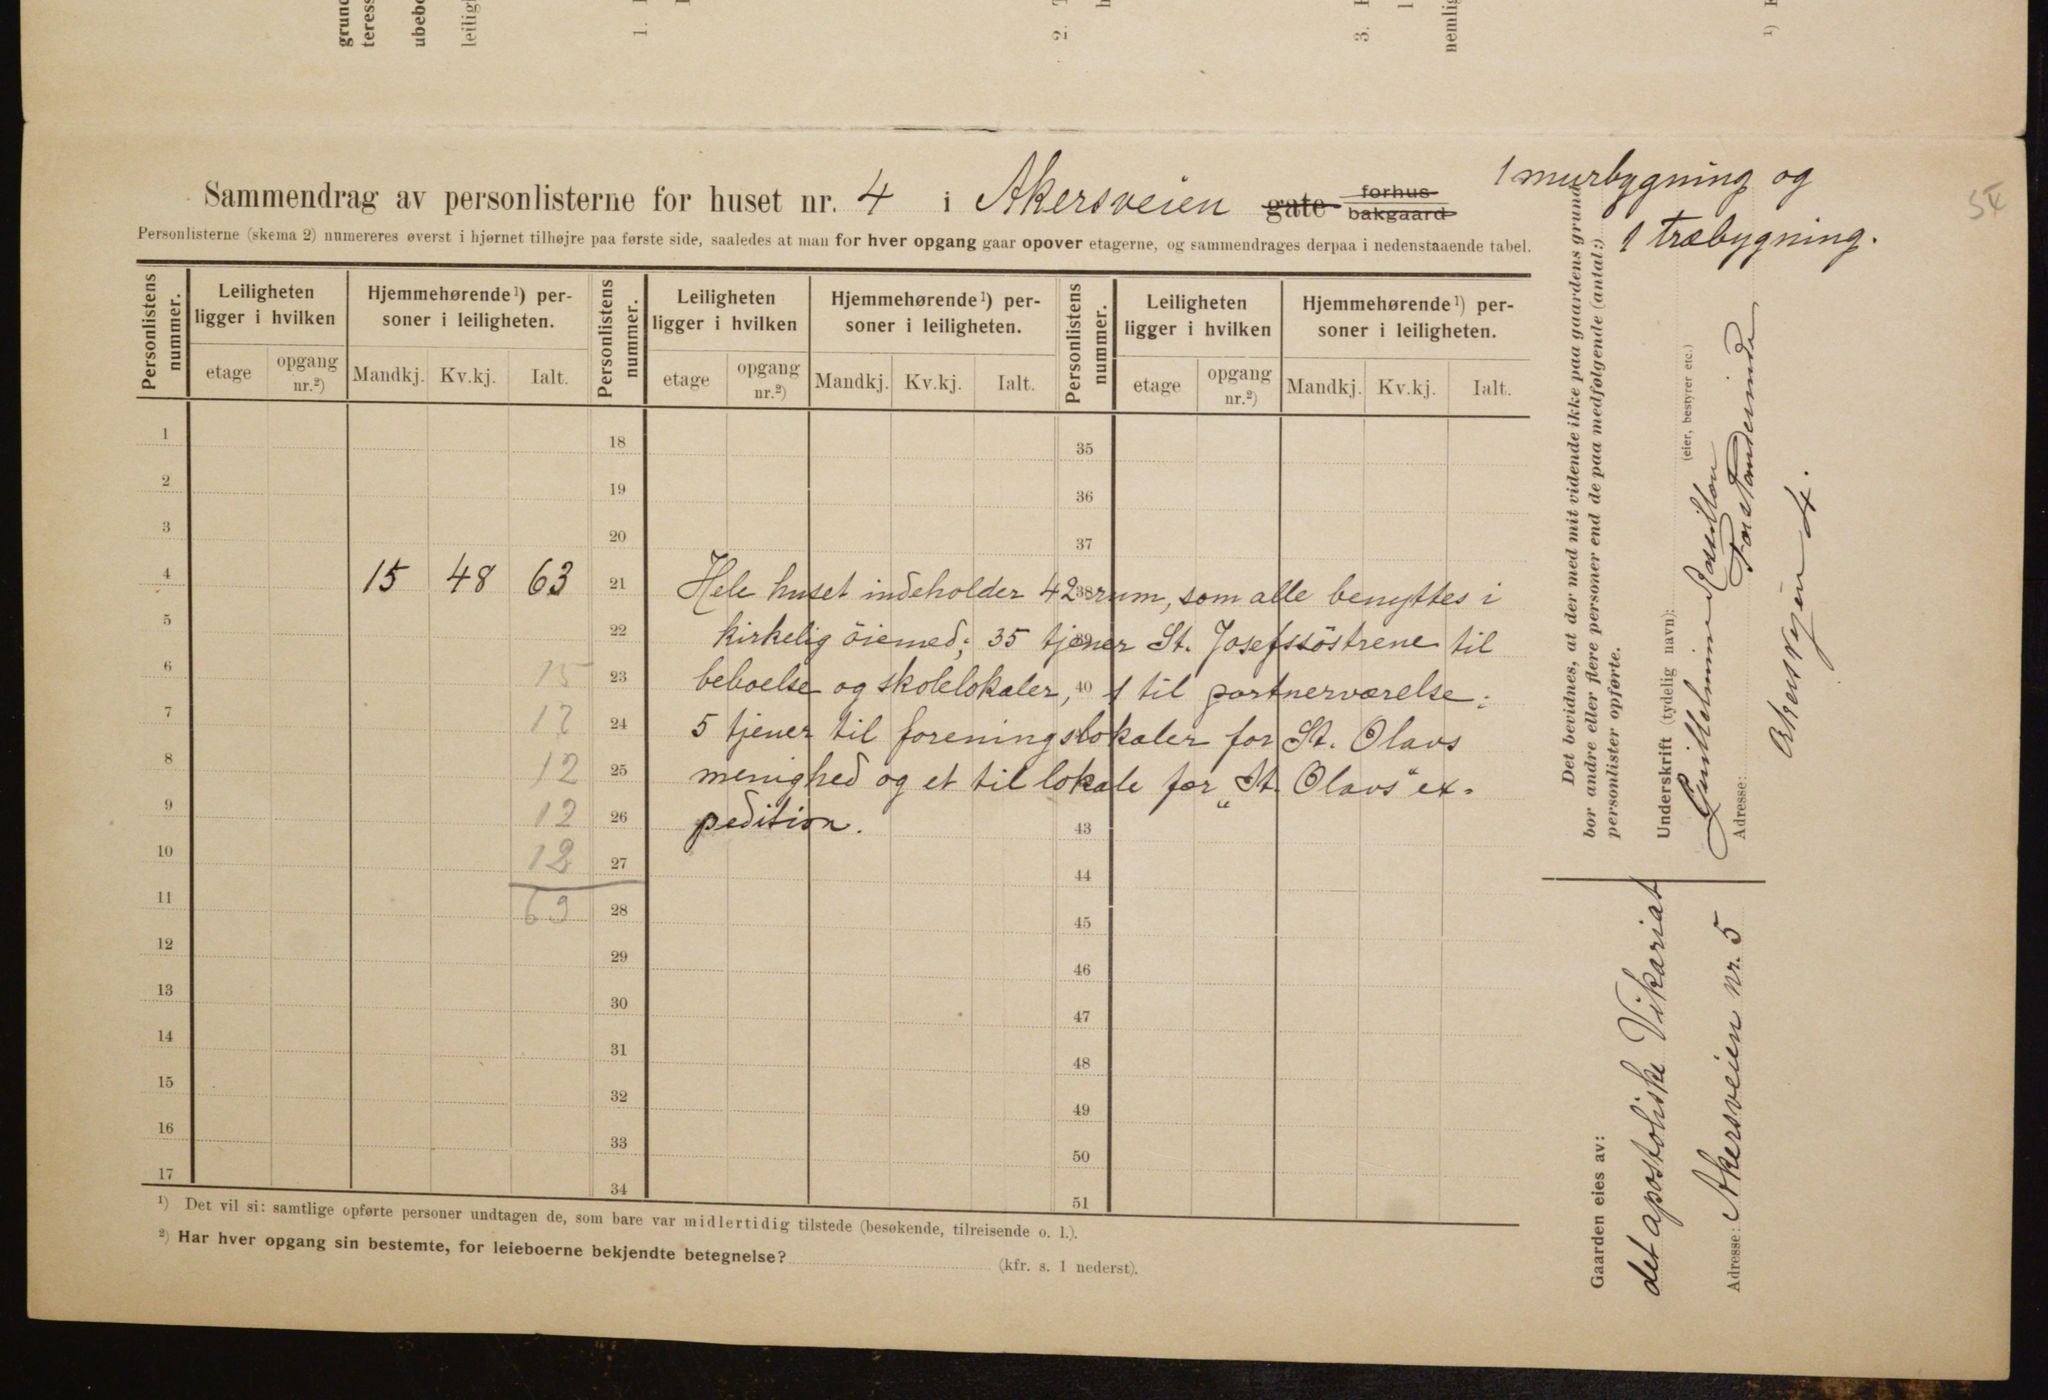 grund
teress
ubebo
leiligh
1.
2.
3.
nemlig
1)
54
1 murbygning og
1 træbygning.
Sammendrag av personlisterne for huset nr. 4 i Akersveien gate forhus bakgaard
Personlisterne (skema 2) numereres øverst i hjørnet tilhøjre paa første side, saaledes at man for hver opgang gaar opover etagerne, og sammendrages derpaa i nedenstaaende tabel.
Personlistens nummer. Leiligheten ligger i hvilken Hjemmehørende¹) personer i leiligheten. Personlistens nummer. Leiligheten ligger i hvilken Hjemmehørende¹) personer i leiligheten. Personlistens nummer. Leiligheten ligger i hvilken Hjemmehørende¹) personer i leiligheten.
etage opgang nr.²) Mandkj. Kv.kj. Ialt. etage opgang nr.²) Mandkj. Kv.kj. Ialt. etage opgang nr.²) Mandkj. Kv.kj. Ialt.
1 18 35
2 19 36
3 20 37
4 15 48 63 21 38
Hele huset indeholder 42 rum, som alle benyttes i
5 22 39
kirkelig öiemed; 35 tjener St. Josefssöstrene til
6 15 23 40
beboelse og skolelokaler, 1 til portnerværelse;
7 12 24
5 tjener til foreningslokaler for St. Olavs
8 12 25
menighed og et til lokale for „St. Olavs" ex-
9 12 26 43
pedition.
10 12 27 44
11 63 28 45
12 29 46
13 30 47
14 31 48
15 32 49
16 33 50
17 34 51
¹) Det vil si: samtlige opførte personer undtagen de, som bare var midlertidig tilstede (besøkende, tilreisende o. l.).
²) Har hver opgang sin bestemte, for leieboerne bekjendte betegnelse? (kfr. s. 1 nederst).
Det bevidnes, at der med mit vidende ikke paa gaardens grund
bor andre eller flere personer end de paa medfølgende (antal:)
personlister opførte.
Underskrift (tydelig navn): (eier, bestyrer etc.)
Guillelmine
Forstanderinde
Adresse:
Akersvejen 4.
Gaarden eies av:
det apostoliske Vikariat
Adresse: Akersveien nr. 5